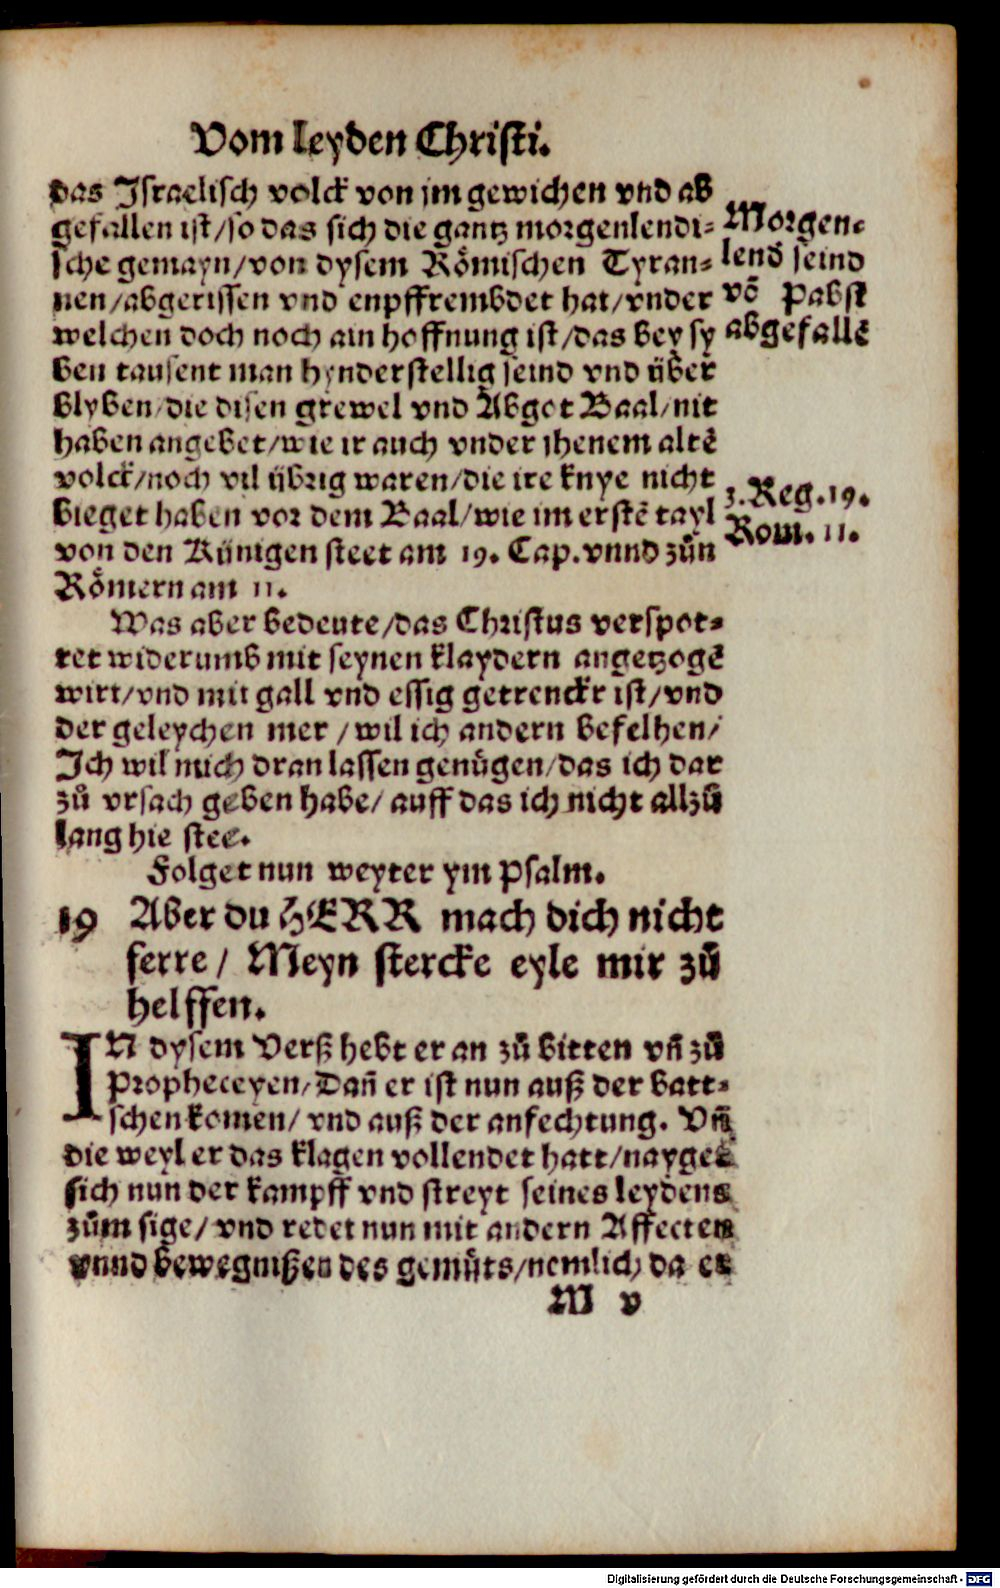 Vom leyden Christi.
das Israelisch volck von jm gewichen vnd ab
gefallen ist/so das sich die gantz morgenlendi⸗
sche gemayn/von dysem Römischen Tyran⸗
nen/abgerissen vnd enpffrembdet hat/vnder
welchen doch noch ain hoffnung ist/das bey sy
ben tausent man hynderstellig seind vnd über
blyben/die disen grewel vnd Abgot Baal/nit
haben angebet/wie ir auch vnder jhenem altē
volck/noch vil übrig waren/die ire knye nicht
bieget haben vor dem Baal/wie im erstē tayl
von den Künigen steet am 19. Cap. vnnd zůn
Römern am 11.
Morgen⸗
lend seind
vō Pabst
abgefallē
3. Reg. 19.
Rom. 11.
Was aber bedeute/das Christus verspot⸗
tet widerumb mit seynen klaydern angetzogē
wirt/vnd mit gall vnd essig getrenckt ist/vnd
der geleychen mer/wil ich andern befelhen/
Ich wil mich dran lassen genůgen/das ich dar
zů vrsach geben habe/auff das ich nicht allzů
lang hie stee.
Folget nun weyter ym Psalm.
19 Aber du HERR mach dich nicht
ferre/ Meyn stercke eyle mir zů
helffen.
IN dysem Verß hebt er an zů bitten vn̄ zů
Propheceyen/Dan̄ er ist nun auß der batt⸗
schen komen/ vnd auß der anfechtung. Vn̄
die weyl er das klagen vollendet hatt/nayget
sich nun der kampff vnd streyt seines leydens
zům sige/vnd redet nun mit andern Affecten
vnnd bewegnißen des gemůts/nemlich da er
M v
Digitalisierung gefördert durch die Deutsche Forschungsgemeinschaft - DFG